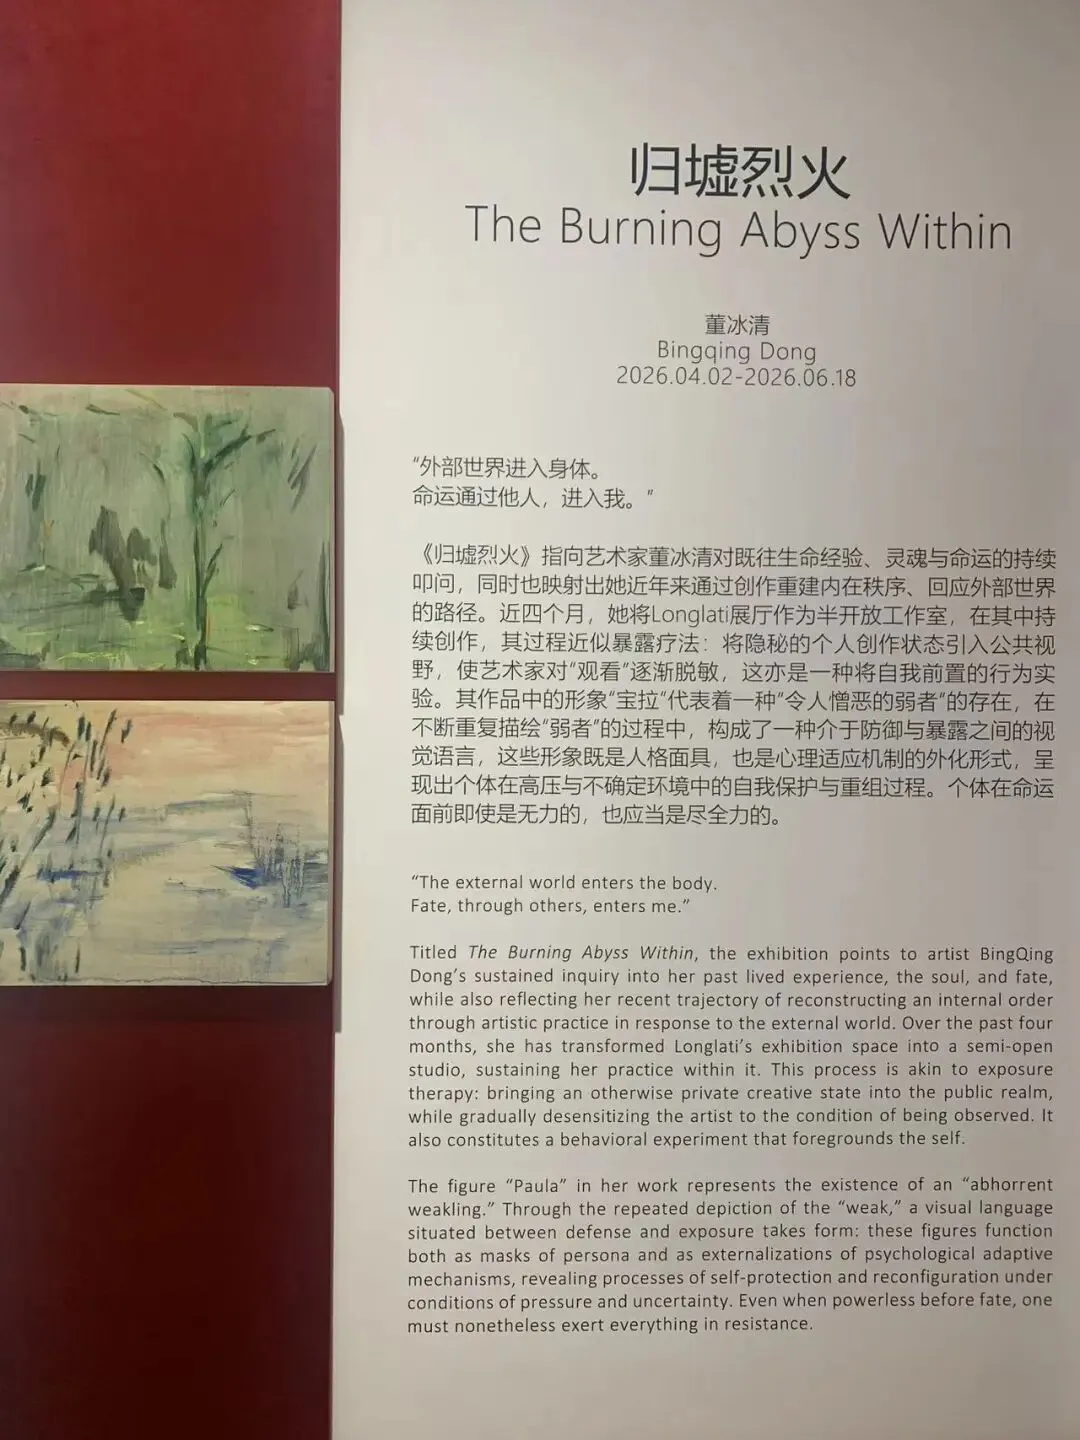 归墟烈火
The Burning Abyss Within
董冰清
Bingqing Dong
2026.04.02-2026.06.18
“外部世界进入身体。
命运通过他人，进入我。”
《归墟烈火》指向艺术家董冰清对既往生命经验、灵魂与命运的持续
叩问，同时也映射出她近年来通过创作重建内在秩序、回应外部世界
的路径。近四个月，她将Longlati展厅作为半开放工作室，在其中持
续创作，其过程近似暴露疗法：将隐秘的个人创作状态引入公共视
野，使艺术家对“观看”逐渐脱敏，这亦是一种将自我前置的行为实
验。其作品中的形象“宝拉”代表着一种“令人憎恶的弱者”的存在，在
不断重复描绘“弱者”的过程中，构成了一种介于防御与暴露之间的视
觉语言，这些形象既是人格面具，也是心理适应机制的外化形式，呈
现出个体在高压与不确定环境中的自我保护与重组过程。个体在命运
面前即使是无力的，也应当是尽全力的。
“The external world enters the body.
Fate, through others, enters me.”
Titled The Burning Abyss Within, the exhibition points to artist BingQing
Dong’s sustained inquiry into her past lived experience, the soul, and fate,
while also reflecting her recent trajectory of reconstructing an internal order
through artistic practice in response to the external world. Over the past four
months, she has transformed Longlati’s exhibition space into a semi-open
studio, sustaining her practice within it. This process is akin to exposure
therapy: bringing an otherwise private creative state into the public realm,
while gradually desensitizing the artist to the condition of being observed. It
also constitutes a behavioral experiment that foregrounds the self.
The figure “Paula” in her work represents the existence of an “abhorrent
weakling.” Through the repeated depiction of the “weak,” a visual language
situated between defense and exposure takes form: these figures function
both as masks of persona and as externalizations of psychological adaptive
mechanisms, revealing processes of self-protection and reconfiguration under
conditions of pressure and uncertainty. Even when powerless before fate, one
must nonetheless exert everything in resistance.